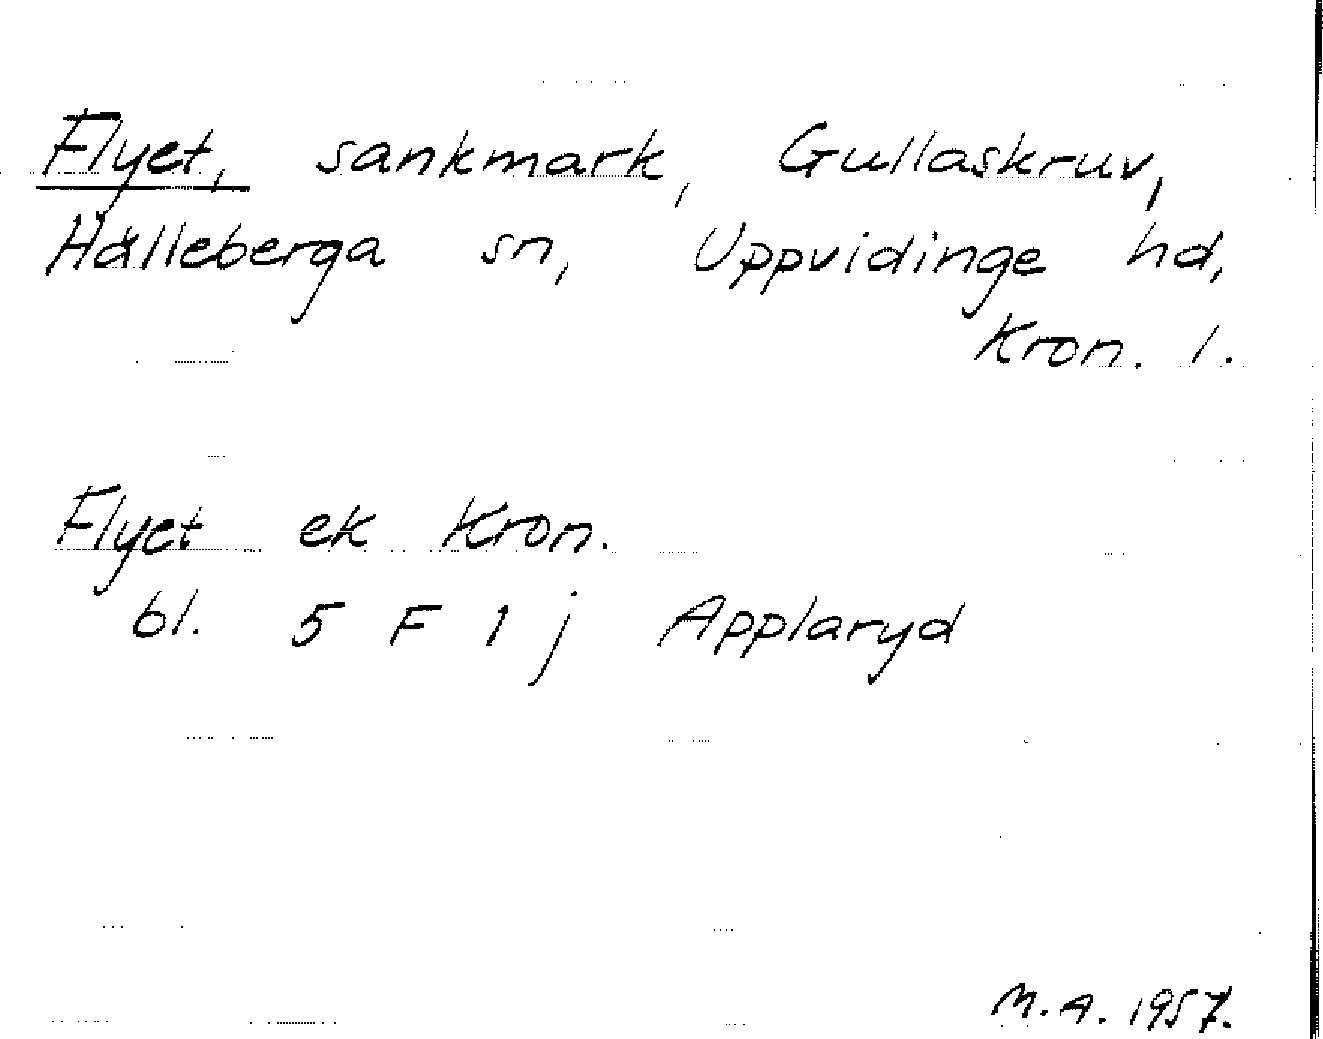 Flyet, sankmark, Gullaskruv,
Hälleberga sn, Uppvidinge hd,
Kron. l.
Flyet ek Kron.
bl. 5 F 1 j Applaryd
M.A. 1957.